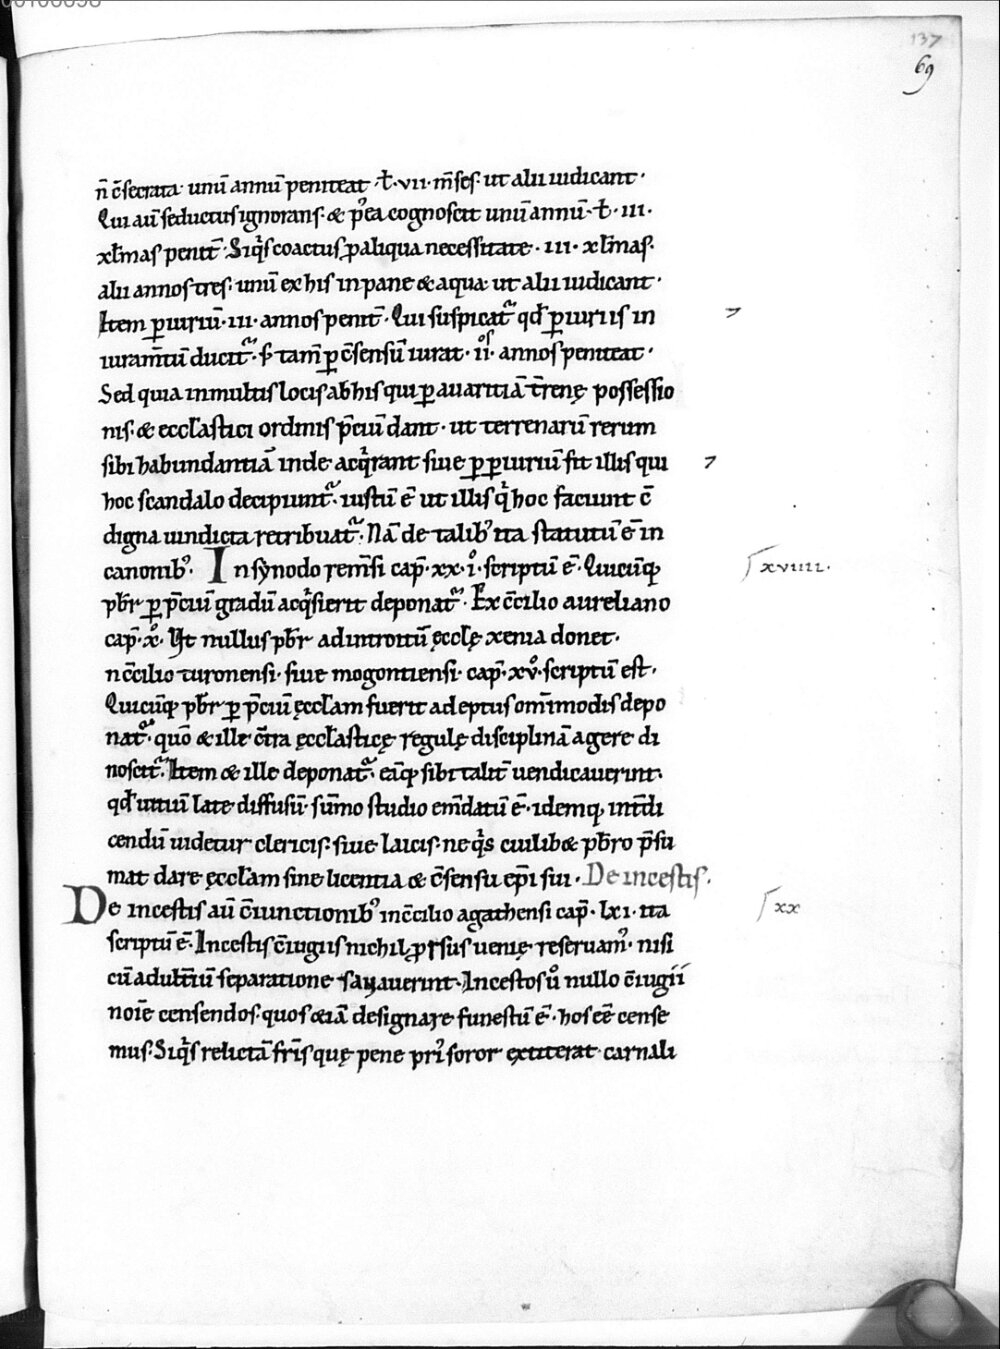 137
69
n̄ c̄secrata· unū annū peniteat· ł·vii·m̄ses· ut alii iudicant·
Qui aū seductus ignorans· & p̄ea cognoscit unū annū· ł·iii·
xl̄mas penit̄· Siq̓s coactus ꝑ aliqua necessitate· iii· xl̄mas·
alii annos tres· unū ex his in pane & aqua· ut alii iudicant·
Item ꝑiuriū· iii· annos penit̄· Qui suspicat᷑ qđ ꝑiuriis in
iuram̄tū ducit᷑· s̄ tam̄ ꝑ c̄sensū iurat· ii̊· annos peniteat·
Sed quia in multis locis ab his qui ꝑ auaritiā t̄renę possessio
nis· & eccl̄astici ordinis p̄ciū dant· ut terrenarū rerum
sibi habundantiā inde acq̓rant siue ꝑ ꝑiuriū fit illis qui
hoc scandalo decipiunt᷑· iustū ē ut illis q̓ hoc faciunt c̄
digna uindicta retribuat᷑· Nā de talibꝰ ita statutū ē in
canonibꝰ· In synodo rem̄si cap̄· xx· i̊· scriptū ē· Quicūq;
pb̄r ꝑ p̄ciū gradū acq̓sierit deponat᷑· Ex c̄cilio aureliano
cap̄· x̊· Ut nullus pb̄r ad introitū ęcclę xenia donet·
n c̄cilio turonensi· siue mogontiensi· cap̄· xv̊· scriptū est·
Quicūq; pb̄r ꝑ p̄ciū ęccl̄am fuerit adeptus om̄imodis depo
nat᷑· quō & ille c̄tra ęccl̄asticę regulę disciplinā agere di
noscit᷑· Item & ille deponat᷑· eāq; sibi talit̄ uendicauerint·
qđ uitiū late diffusū· sūmo studio em̄datū ē· idemq; int̄di
cendū uidetur clericis· siue laicis· ne q̓s cuilib& pb̄ro p̄su
mat dare ęccl̄am sine licentia & c̄sensu ep̄i sui· De incestis·
De incestis aū c̄iunctionibꝰ in c̄cilio agathensi cap̄· lxi· ita
scriptū ē· Incestis c̄iugiis nichil ꝓrsus uenię reseruam᷒· nisi
cū adult̄iū separatione sanauerint· Incestos ů nullo c̄iugii
noīe censendos· quos &iā designare funestū ē· hos ēē cense
mus· Siq̓s relictā fr̄is quę pene priꝰ soror extiterat· carnali
xviiii·
xx